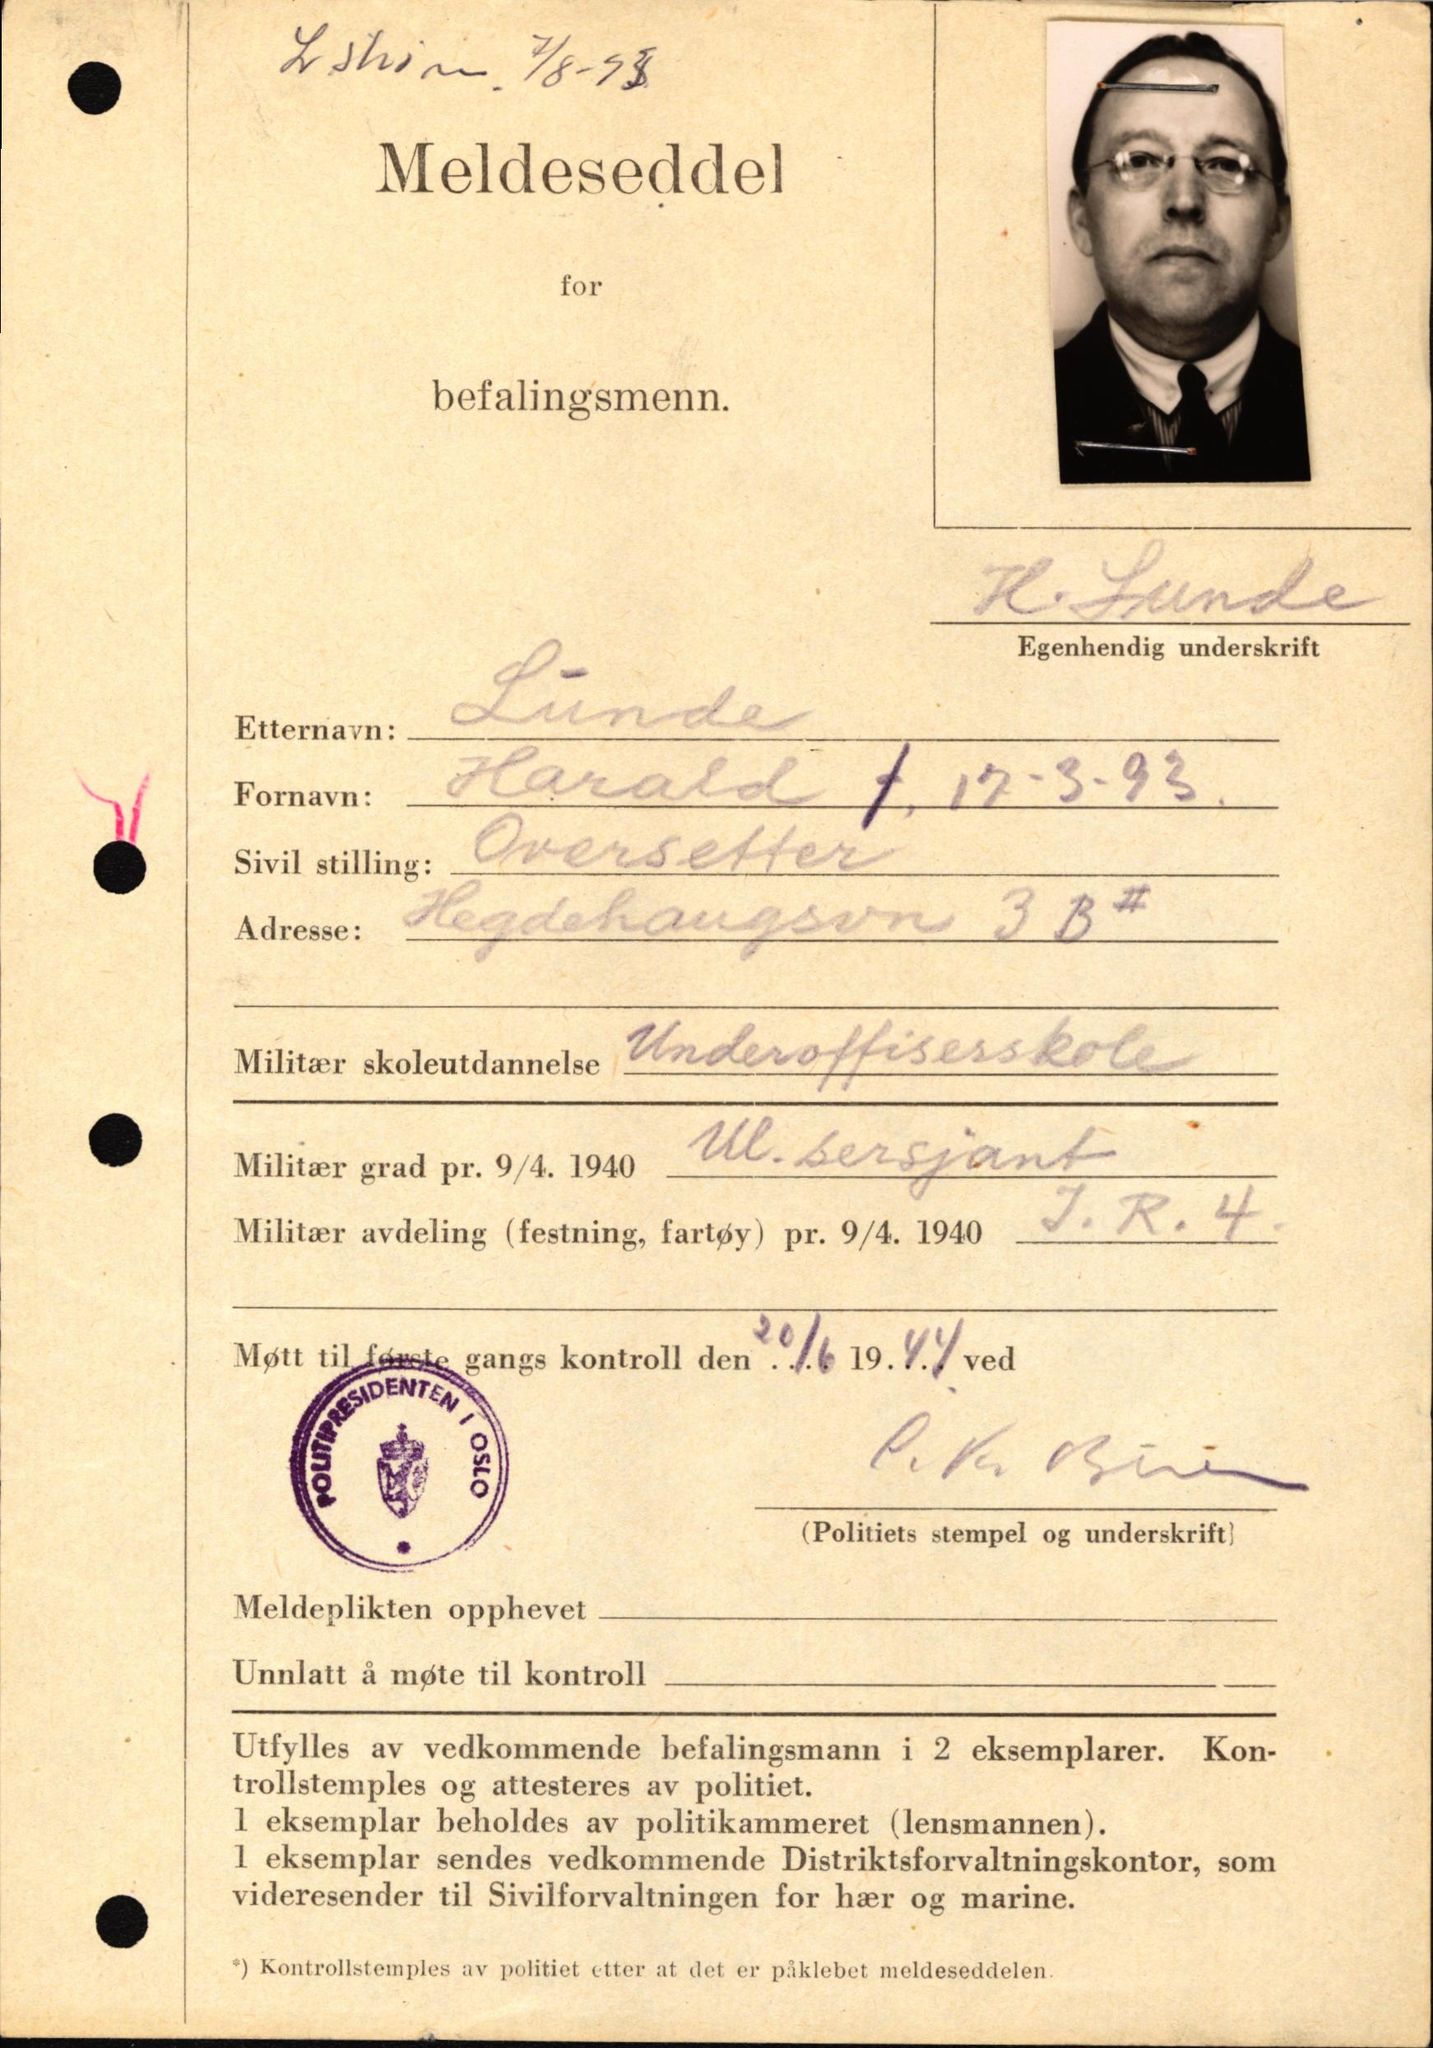 7/8-43
Meldeseddel
for
befalingsmenn.
H. Lunde
Egenhendig underskrift
Etternavn: Lunde
Fornavn: Harald f. 17-3-93.
Sivil stilling: Oversetter
Adresse: Hegdehaugsvn 3 B II
Militær skoleutdannelse Underoffisersskole
Militær grad pr. 9/4. 1940 Ul. sersjant
Militær avdeling (festning, fartøy) pr. 9/4. 1940 I. R. 4.
Møtt til første gangs kontroll den 20/6 1944 ved
POLITIPRESIDENTEN I OSLO
(Politiets stempel og underskrift)
Meldeplikten opphevet
Unnlatt å møte til kontroll
Utfylles av vedkommende befalingsmann i 2 eksemplarer. Kon-
trollstemples og attesteres av politiet.
1 eksemplar beholdes av politikammeret (lensmannen).
1 eksemplar sendes vedkommende Distriktsforvaltningskontor, som
videresender til Sivilforvaltningen for hær og marine.
*) Kontrollstemples av politiet etter at det er påklebet meldeseddelen.